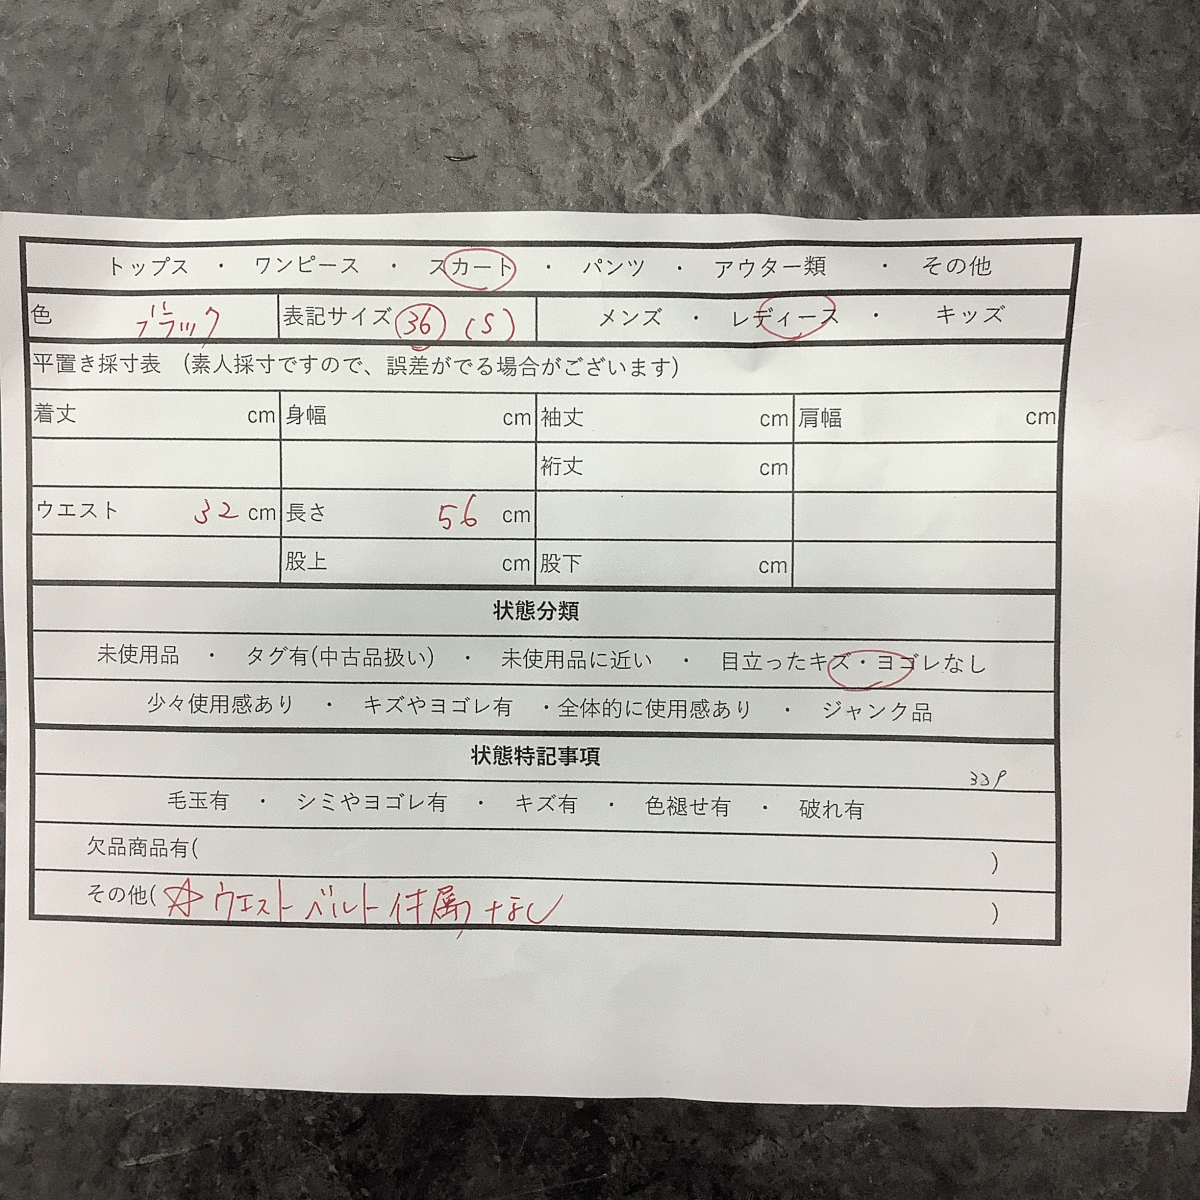 トップス ・ ワンピース ・ スカート ・ パンツ ・ アウター類 ・ その他
色 ブラック 表記サイズ 36 (S) メンズ ・ レディース ・ キッズ
平置き採寸表 (素人採寸ですので、誤差がでる場合がございます)
着丈 cm 身幅 cm 袖丈 cm 肩幅 cm
裄丈 cm
ウエスト 32 cm 長さ 56 cm
股上 cm 股下 cm
状態分類
未使用品 ・ タグ有(中古品扱い) ・ 未使用品に近い ・ 目立ったキズ・ヨゴレなし
少々使用感あり ・ キズやヨゴレ有 ・全体的に使用感あり ・ ジャンク品
状態特記事項
339
毛玉有 ・ シミやヨゴレ有 ・ キズ有 ・ 色褪せ有 ・ 破れ有
欠品商品有( )
その他( ☆ウエストベルト付属なし )